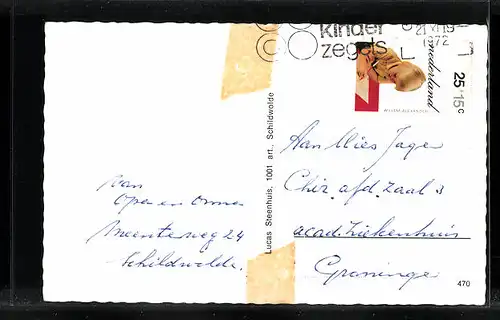 kinder
zegels
21.XI.19
1972
nederland
25+15c
WILLEM-ALEXANDER
Lucas Steenhuis, 1001 art., Schildwolde
Aan Mies Jager
Chir. afd. zaal 3
acad. Ziekenhuis
Groninge
van
Opa en Oma
Meenteweg 24
Schildwolde.
470